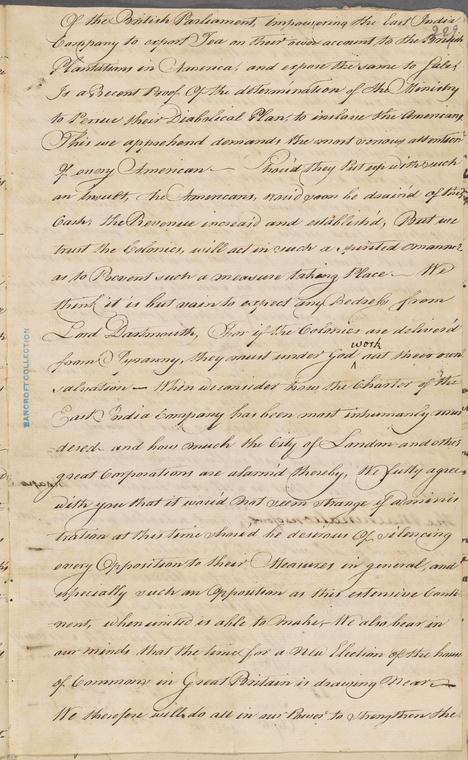 Of the British Parliament, Impowering the East India
289
Company to export Tea on their own account, to the British
Plantations in America, and expose the same to sale;
Is a Recent Proof Of the determination of the Ministry
to Persue their Diabolical Plan, to inslave the Americans
This we apprehend demands the most serious attention
Of every American — Shou'd they Put up with such
an Insult, the Americans, wou'd soon be drain'd of their
Cash, the Revenue increas'd and establish'd, But we
trust the Colonies, will act in such a spirited manner
as to Prevent such a measure taking Place — We
think it is but vain to expect any Redress from
Lord Dartmouth, For if the Colonies are deliver'd
from Tyranny, they must under God work out their own
salvation — When we consider how the Charter of the
East India Company has been most inhumanly mur
-dered and how much the City of London and other
great Corporations are alarm'd thereby, We fully agree
with you that it wou'd not seem strange if adminis
tration at this time shou'd be desirous Of silencing
every Opposition to their Measures in general, and
especially such an Opposition as this extensive Conti-
nent, when united is able to make, We also bear in
our minds that the time for a New Election of the house
of Commons in Great Britain is drawing Near —
We therefore will do all in our Power to strengthen the
BANCROFT COLLECTION